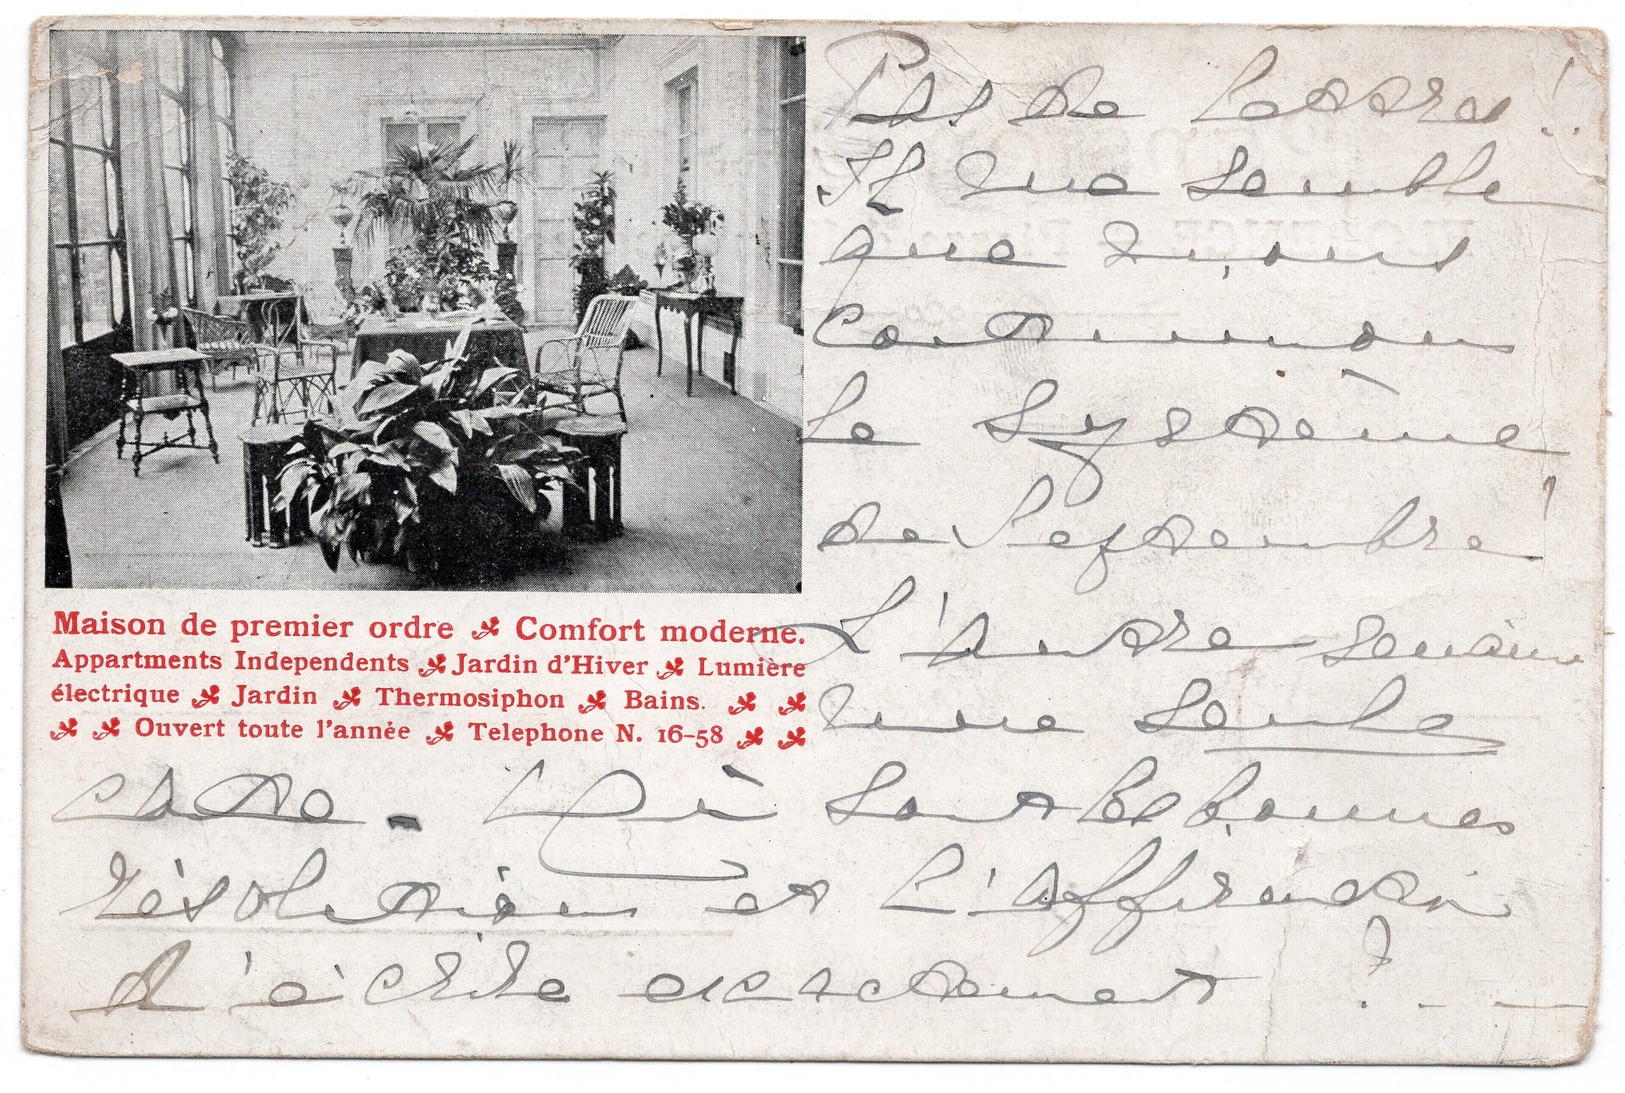 Maison de premier ordre Comfort moderne.
Appartments Independents Jardin d'Hiver Lumière
électrique Jardin Thermosiphon Bains.
Ouvert toute l'année Telephone N. 16-58
Pas de lettres!!
Il me semble
que nous
continuons
le système
de Septembre!
L'autre semaine
une seule
carte. Où sont les bonnes
résolutions et l'affirmation
d'écrire exactement ?